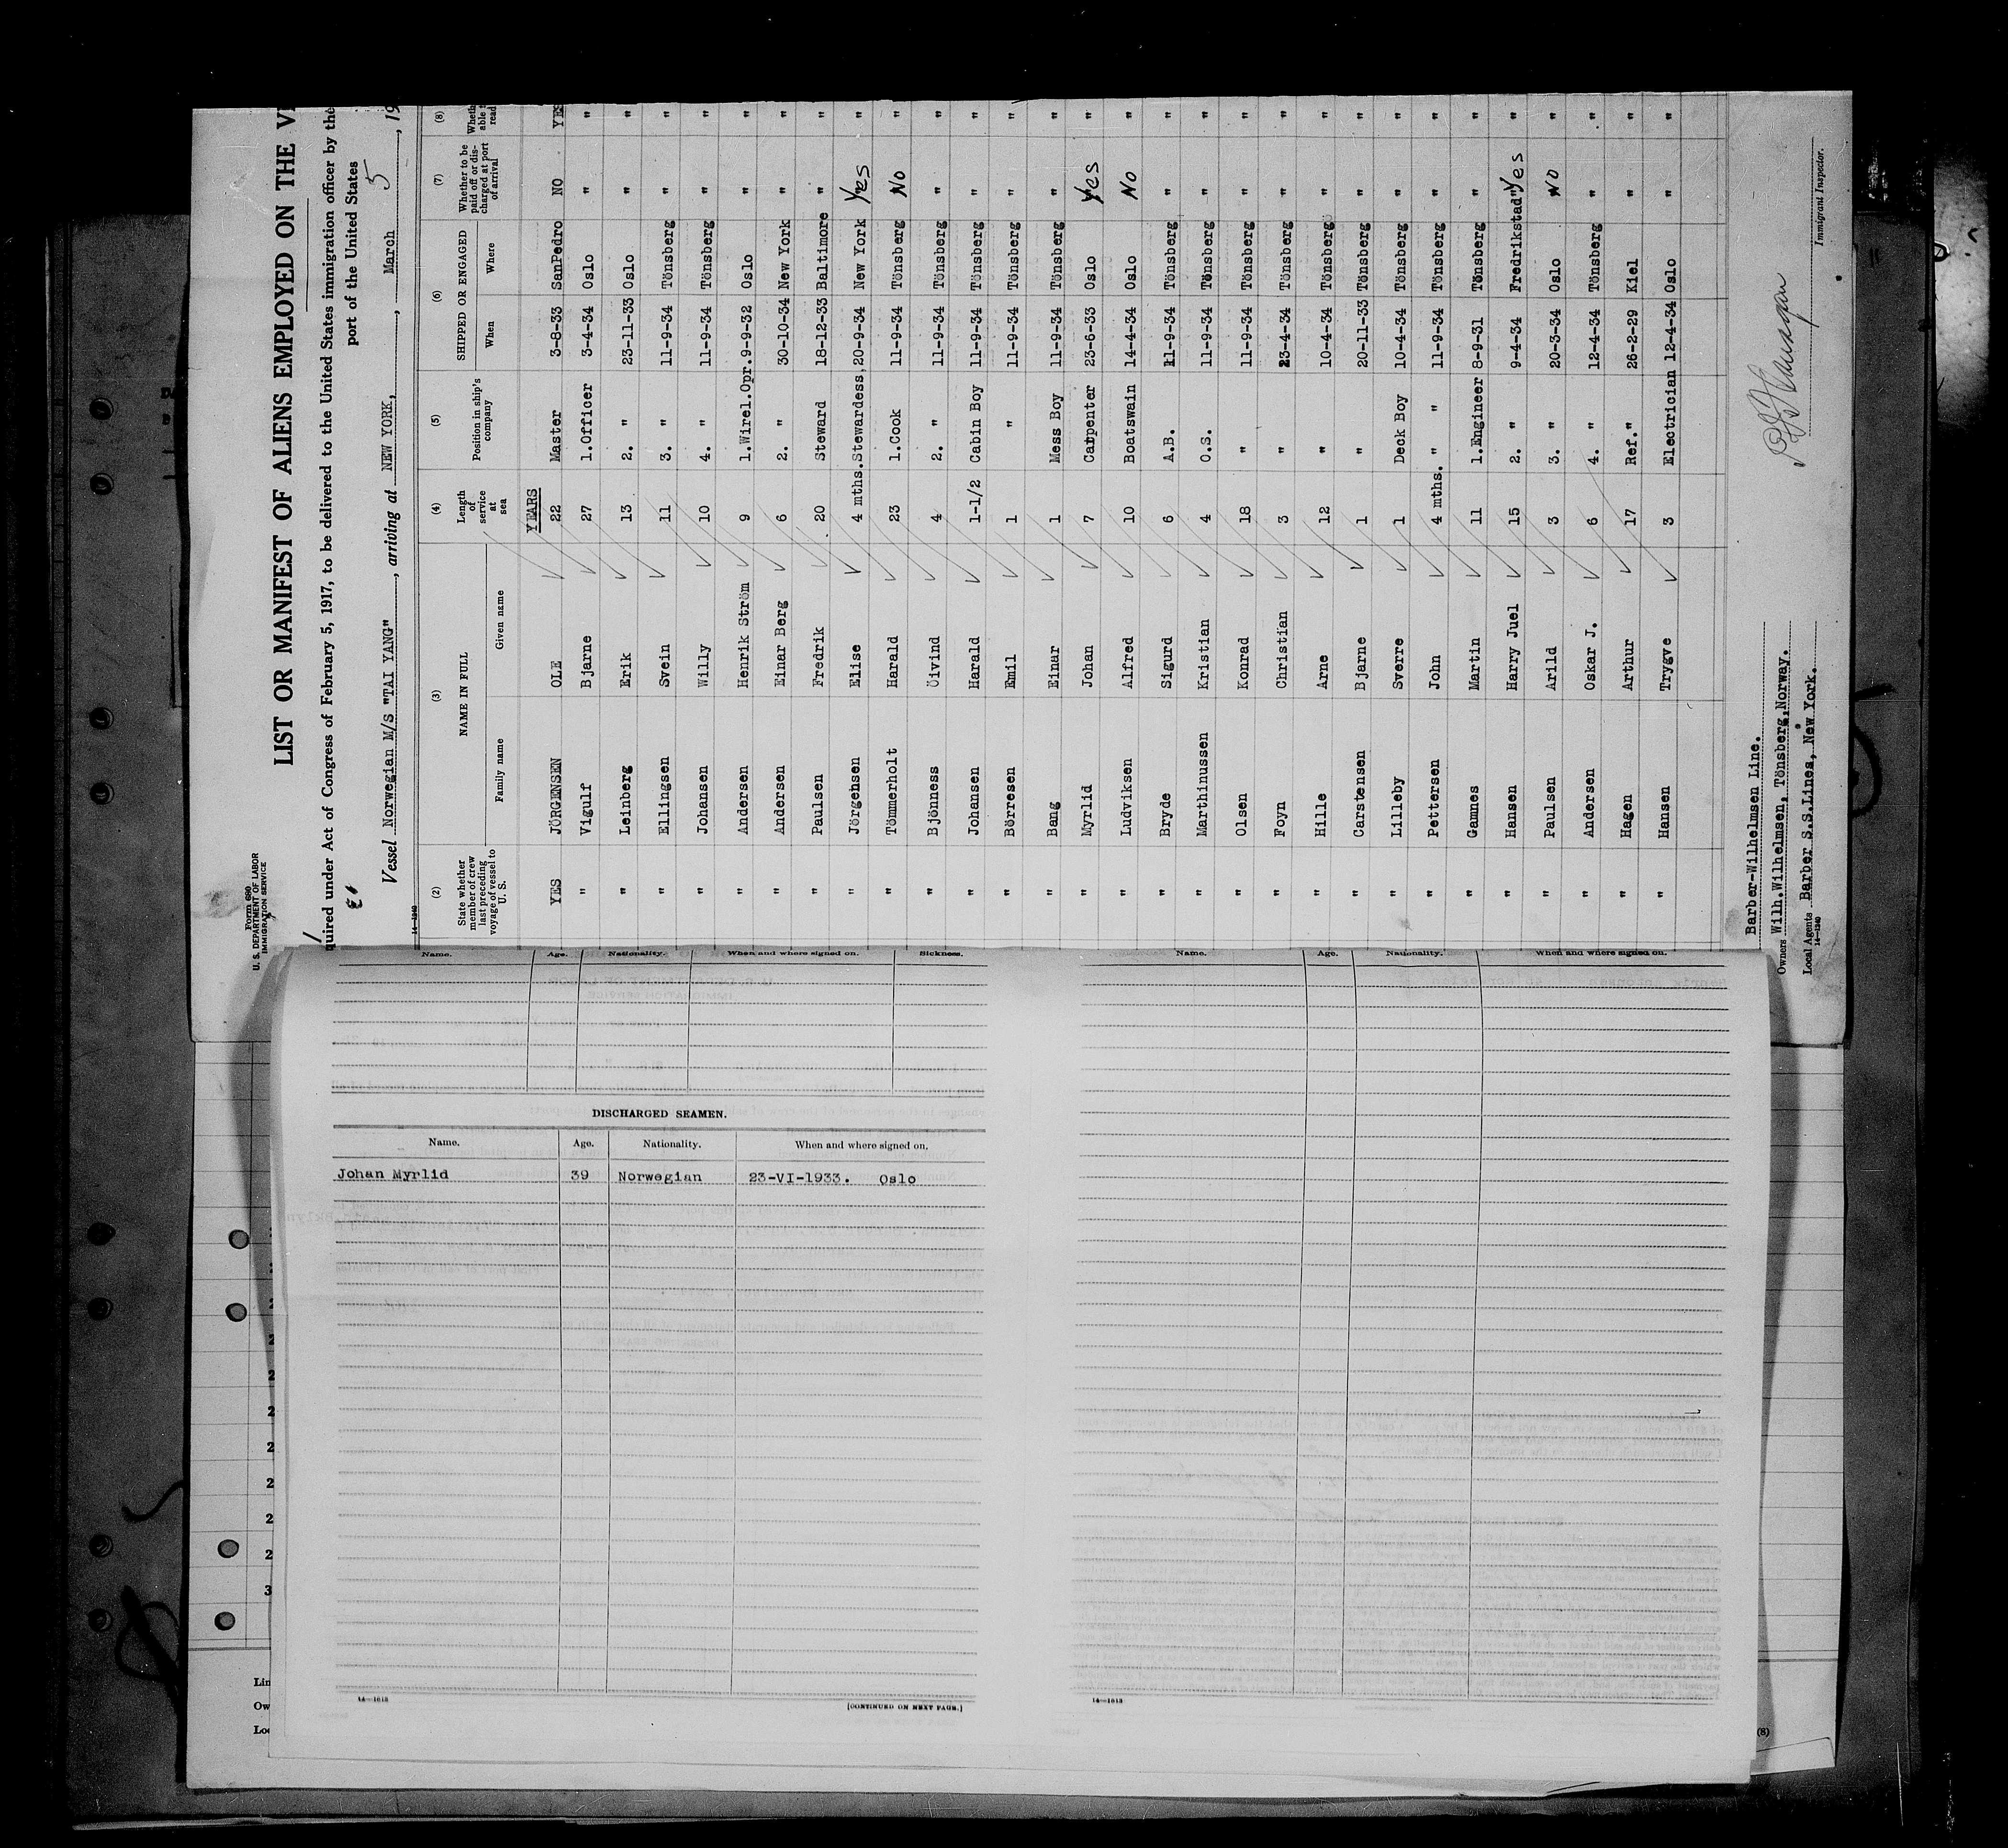 Form 680
U. S. DEPARTMENT OF LABOR
IMMIGRATION SERVICE
LIST OR MANIFEST OF ALIENS EMPLOYED ON THE
quired under Act of Congress of February 5, 1917, to be delivered to the United States immigration officer by the
port of the United States
Vessel Norwegian M/S "TAI YANG", arriving at NEW YORK, March 5, 19
14-1240
(2) (3) (4) (5) (6) (7) (8)
State whether member of crew last preceding voyage of vessel to U. S. NAME IN FULL Length of service at sea Position in ship's company SHIPPED OR ENGAGED Whether to be paid off or discharged at port of arrival
Family name Given name When Where
YEARS
YES JÖRGENSEN OLE 22 Master 3-8-33 SanPedro NO YES
" Vigulf Bjarne 27 1.Officer 3-4-34 Oslo " "
" Leinberg Erik 13 2. " 23-11-33 Oslo " "
" Ellingsen Svein 11 3. " 11-9-34 Tönsberg " "
" Johansen Willy 10 4. " 11-9-34 Tönsberg " "
" Andersen Henrik Ström 9 1.Wirel.Opr. 9-9-32 Oslo " "
" Andersen Einar Berg 6 2. " 30-10-34 New York " "
" Paulsen Fredrik 20 Steward 18-12-33 Baltimore " "
" Jörgensen Elise 4 mths. Stewardess, 20-9-34 New York Yes "
" Tömmerholt Harald 23 1.Cook 11-9-34 Tönsberg No "
" Bjönness Öivind 4 2. " 11-9-34 Tönsberg " "
" Johansen Harald 1-1/2 Cabin Boy 11-9-34 Tönsberg " "
" Börresen Emil 1 " 11-9-34 Tönsberg " "
" Bang Einar 1 Mess Boy 11-9-34 Tönsberg " "
" Myrlid Johan 7 Carpenter 23-6-33 Oslo Yes "
" Ludviksen Alfred 10 Boatswain 14-4-34 Oslo No "
" Bryde Sigurd 6 A.B. 11-9-34 Tönsberg " "
" Marthinussen Kristian 4 O.S. 11-9-34 Tönsberg " "
" Olsen Konrad 18 " 11-9-34 Tönsberg " "
" Foyn Christian 3 " 23-4-34 Tönsberg " "
" Hille Arne 12 " 10-4-34 Tönsberg " "
" Carstensen Bjarne 1 " 20-11-33 Tönsberg " "
" Lilleby Sverre 1 Deck Boy 10-4-34 Tönsberg " "
" Pettersen John 4 mths. " " 11-9-34 Tönsberg " "
" Gamnes Martin 11 1.Engineer 8-9-31 Tönsberg " "
" Hansen Harry Juel 15 2. " 9-4-34 Fredrikstad " Yes "
" Paulsen Arild 3 3. " 20-3-34 Oslo No "
" Andersen Oskar J. 6 4. " 12-4-34 Tönsberg " "
" Hagen Arthur 17 Ref." 26-2-29 Kiel " "
" Hansen Trygve 3 Electrician 12-4-34 Oslo " "
Barber-Wilhelmsen Line.
Owners Wilh.Wilhelmsen, Tönsberg,Norway.
Local Agents Barber S.S.Lines, New York.
14-1240
Immigrant Inspector.
Name. Age. Nationality. When and where signed on. Sickness.
DISCHARGED SEAMEN.
Name. Age. Nationality. When and where signed on.
Johan Myrlid 39 Norwegian 23-VI-1933. Oslo
14-1613
[CONTINUED ON NEXT PAGE.]
Name. Age. Nationality. When and where signed on.
14-1613
2
2
2
2
2
3
Lin
Ow
Loc
(8)